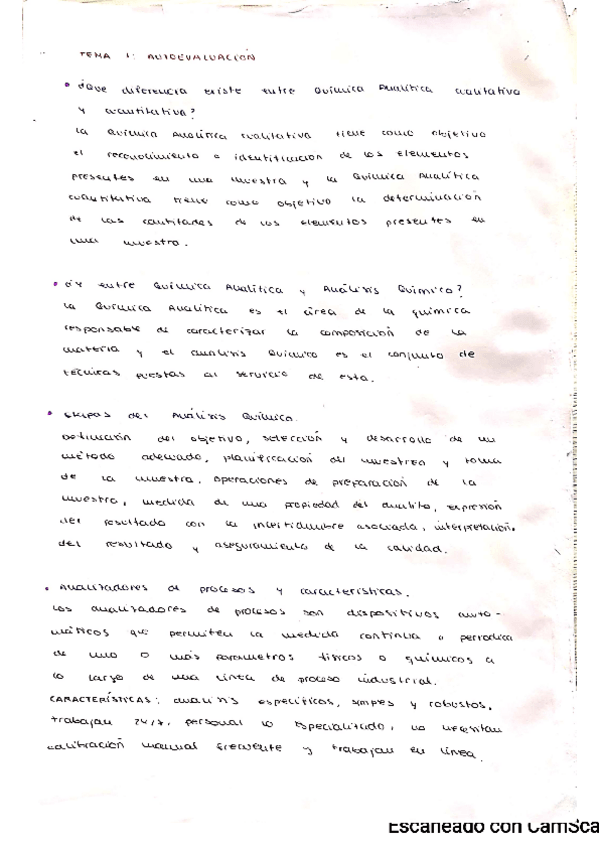 TEMA 1: AUTOEVALUACIÓN
• ¿Que diferencia existe entre Química Analítica cualitativa
y cuantitativa?
La Química Analítica cualitativa tiene como objetivo
el reconocimiento o identificación de los elementos
presentes en una muestra y la Química Analítica
cuantitativa tiene como objetivo la determinación
de las cantidades de los elementos presentes en
una muestra.
• ¿Y entre Química Analítica y Análisis Químico?
La Química Analítica es el área de la química
responsable de caracterizar la composición de la
materia y el análisis químico es el conjunto de
técnicas puestas al servicio de esta.
• Etapas del Análisis Químico.
Definición del objetivo, selección y desarrollo de un
método adecuado, planificación del muestreo y toma
de la muestra, operaciones de preparación de la
muestra, medida de una propiedad del analito, expresión
del resultado con la incertidumbre asociada, interpretación
del resultado y aseguramiento de la calidad.
• Analizadores de procesos y características.
Los analizadores de procesos son dispositivos auto-
máticos que permiten la medida continua o periodica
de uno o más parametros físicos o químicos a
lo largo de una línea de proceso industrial.
CARACTERÍSTICAS: análisis específicos, simples y robustos,
trabajan 24/7, personal no especializado, no necesitan
calibración manual frecuente y trabajan en línea.
Escaneado con CamSca